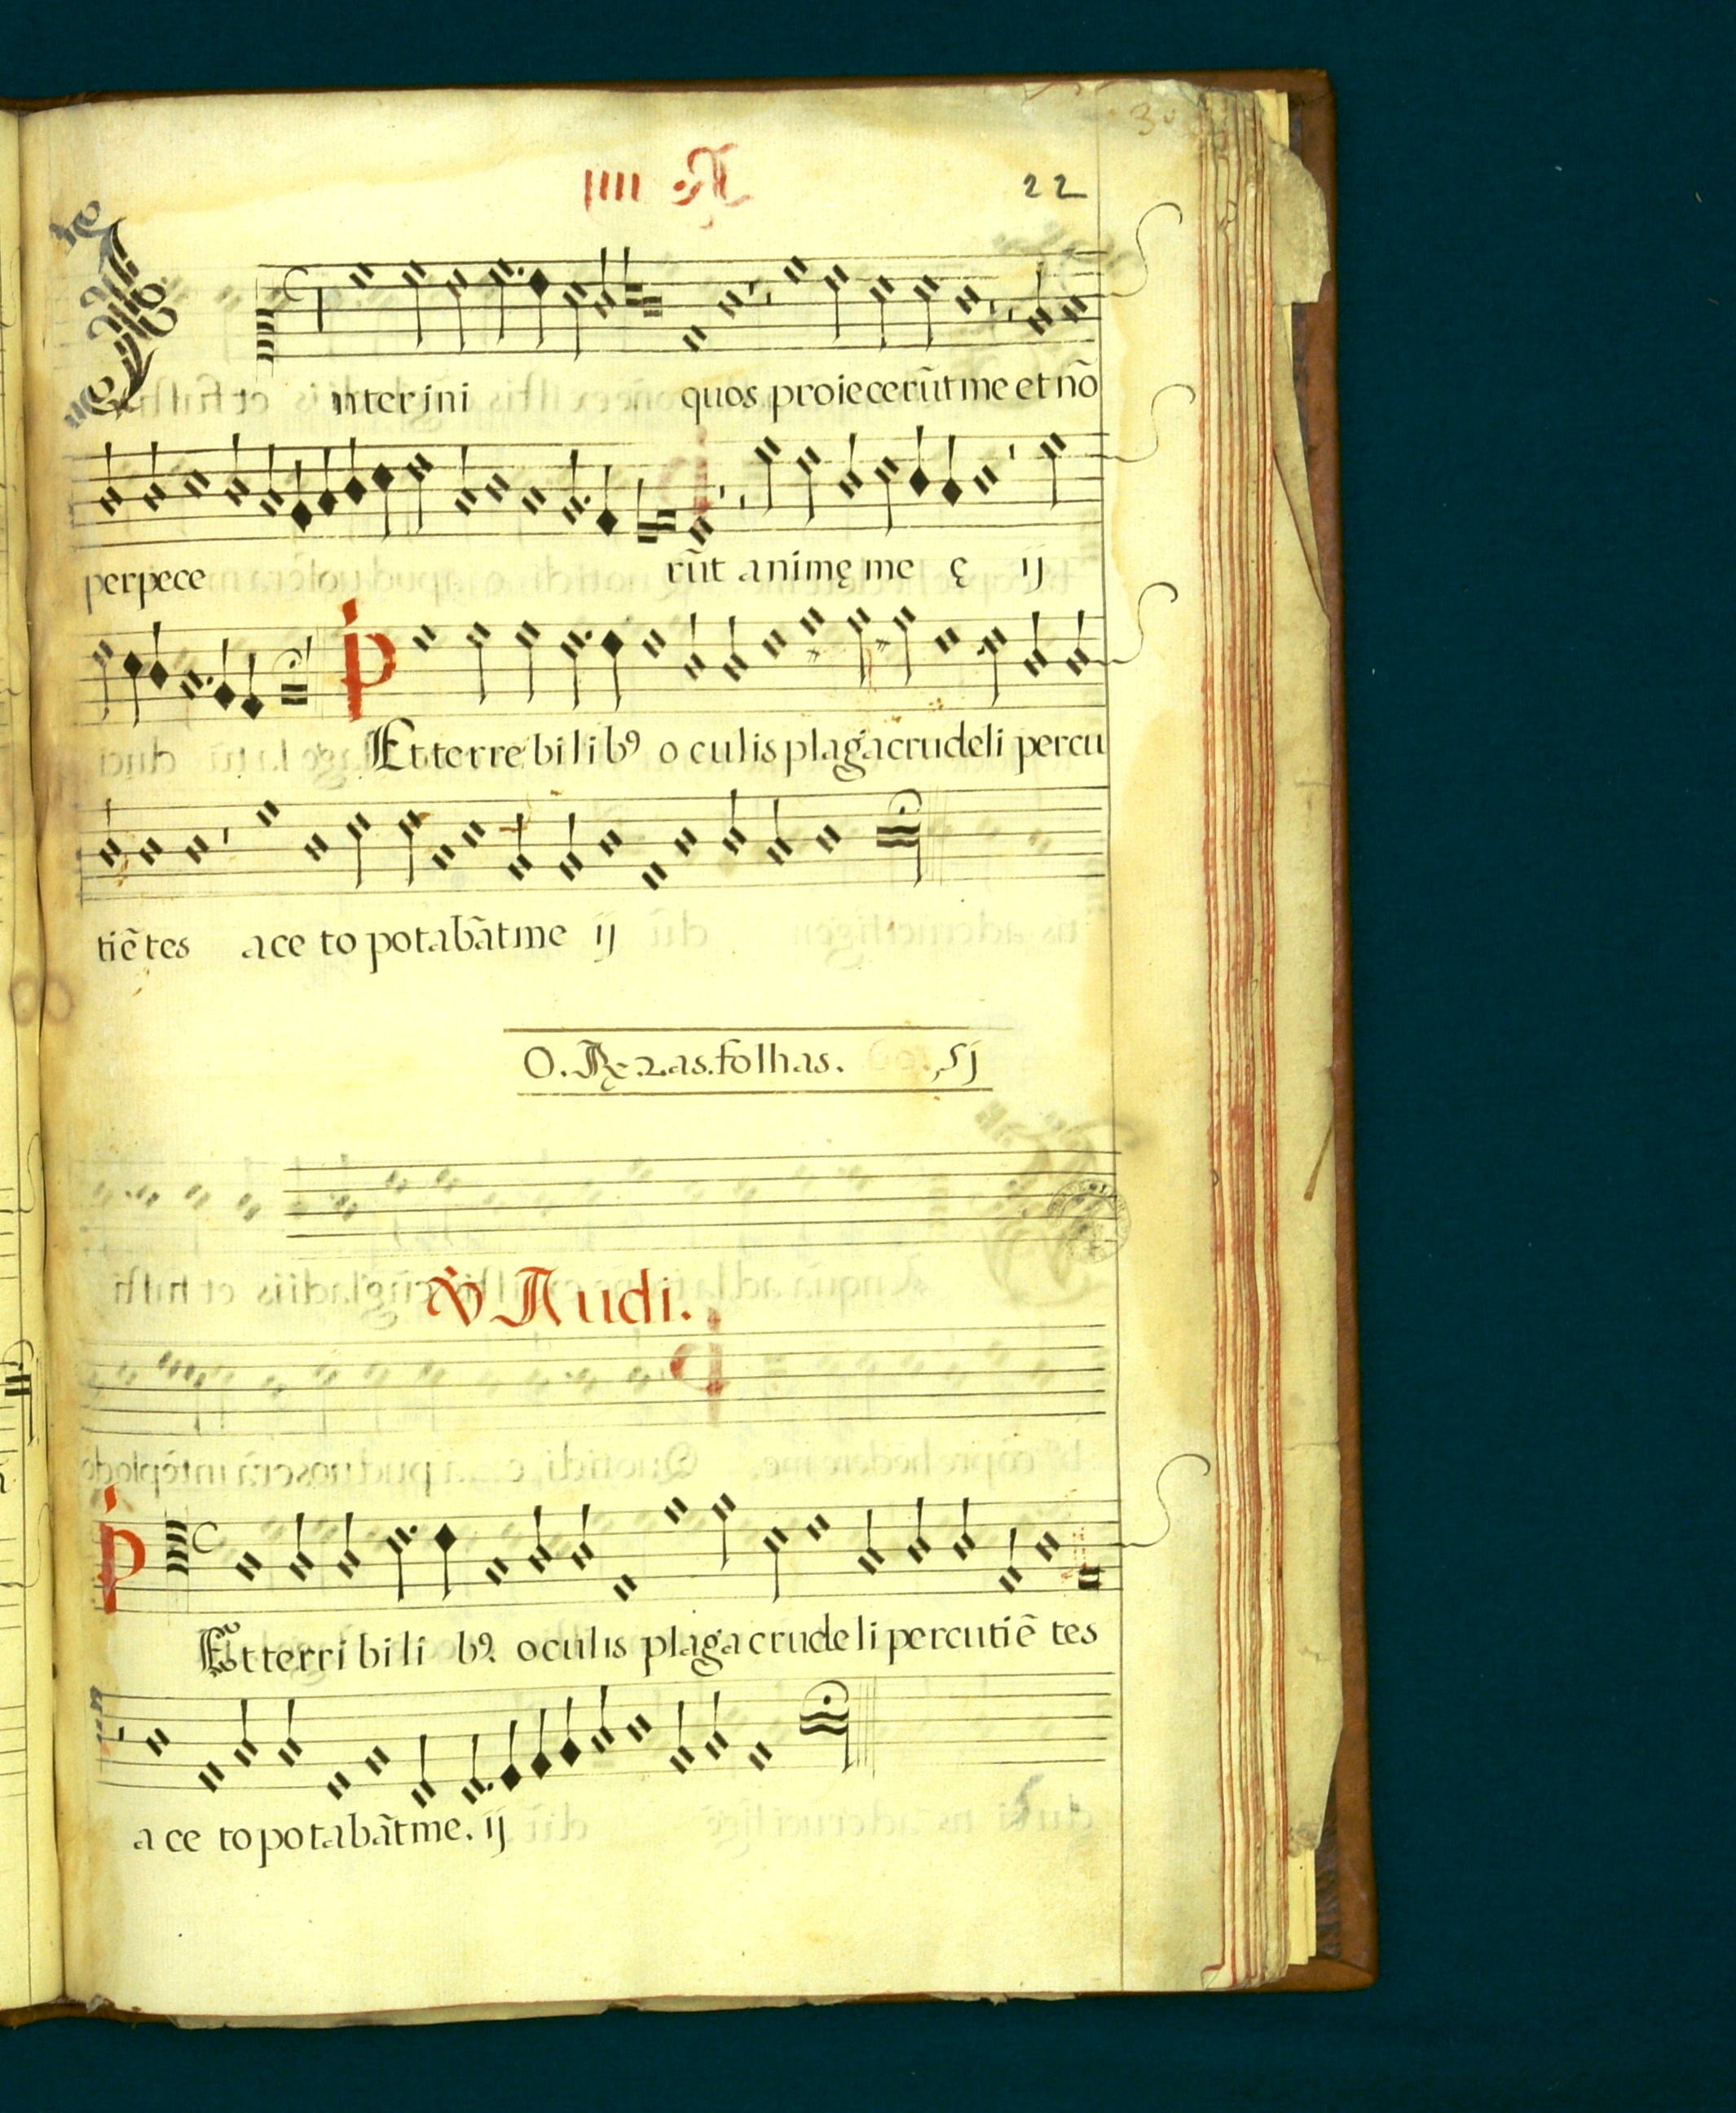 30
IIII R
22
Inter ini quos proiecerũt me et nõ
perpece rũt animę me ę ij
p Et terre bi li bꝰ o culis plaga crudeli percu
tiẽ tes ace to potabãt me ij
O. R. 2. as. folhas. 51
V Audi.
p Et terri bi li bꝰ. oculis plaga crudeli percutiẽ tes
a ce to potabãt me. ij